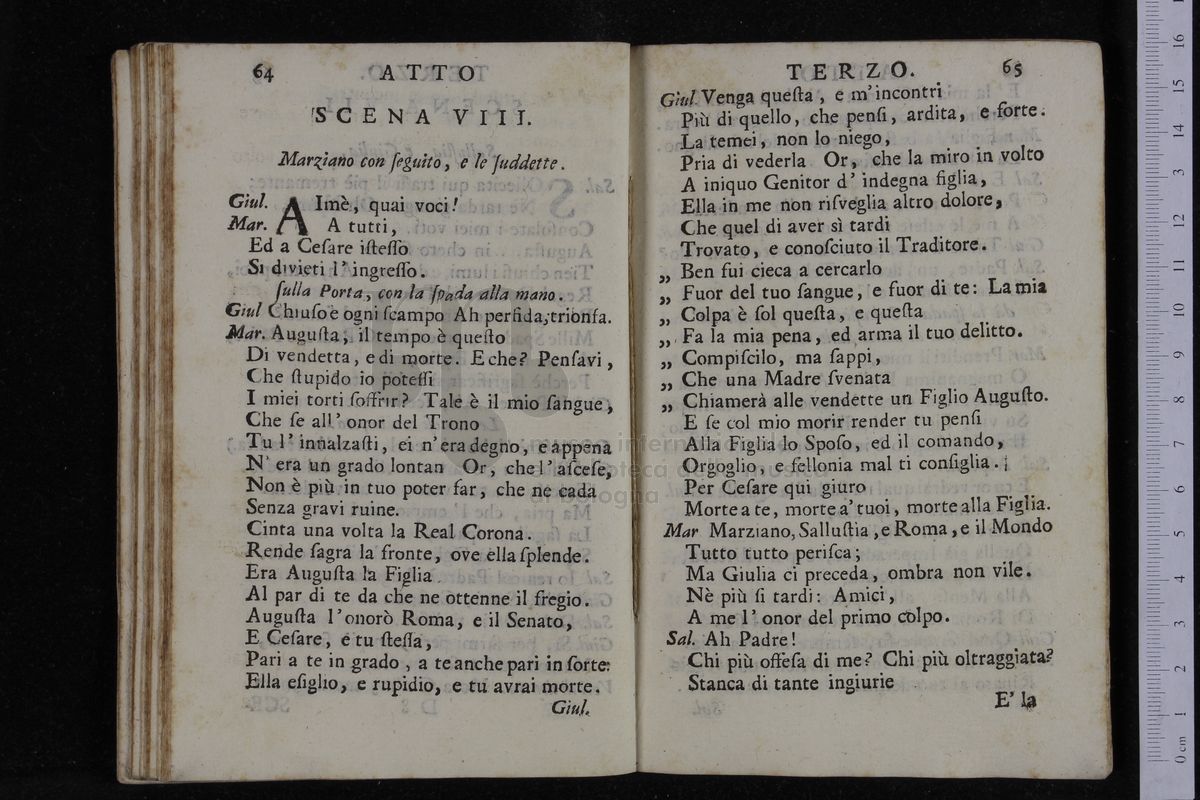 64 ATTO
SCENA VIII.
Marziano con ſeguito, e le ſuddette.
Giul. AImè, quai voci!
Mar. A tutti,
Ed a Ceſare iſteſſo
Si divieti l'ingreſſo.
ſulla Porta, con la ſpada alla mano.
Giul Chiuſo è ogni ſcampo Ah perfida, trionfa.
Mar. Auguſta, il tempo è queſto
Di vendetta, e di morte. E che? Penſavi,
Che ſtupido io poteſſi
I miei torti ſoffrir? Tale è il mio ſangue,
Che ſe all'onor del Trono
Tu l'innalzaſti, ei n'era degno, e appena
N'era un grado lontan Or, che l'aſceſe,
Non è più in tuo poter far, che ne cada
Senza gravi ruine.
Cinta una volta la Real Corona.
Rende ſagra la fronte, ove ella ſplende.
Era Auguſta la Figlia
Al par di te da che ne ottenne il fregio.
Auguſta l'onorò Roma, e il Senato,
E Ceſare, e tu ſteſſa,
Pari a te in grado, a te anche pari in ſorte:
Ella eſiglio, e rupidio, e tu avrai morte.
Giul.
TERZO. 65
Giul. Venga queſta, e m'incontri
Più di quello, che penſi, ardita, e forte.
La temei, non lo niego,
Pria di vederla Or, che la miro in volto
A iniquo Genitor d'indegna figlia,
Ella in me non riſveglia altro dolore,
Che quel di aver sì tardi
Trovato, e conoſciuto il Traditore.
„ Ben fui cieca a cercarlo
„ Fuor del tuo ſangue, e fuor di te: La mia
„ Colpa è ſol queſta, e queſta
„ Fa la mia pena, ed arma il tuo delitto.
„ Compiſcilo, ma ſappi,
„ Che una Madre ſvenata
„ Chiamerà alle vendette un Figlio Auguſto.
E ſe col mio morir render tu penſi
Alla Figlia lo Spoſo, ed il comando,
Orgoglio, e fellonia mal ti conſiglia.
Per Ceſare qui giuro
Morte a te, morte a' tuoi, morte alla Figlia.
Mar Marziano, Salluſtia, e Roma, e il Mondo
Tutto tutto periſca;
Ma Giulia ci preceda, ombra non vile.
Nè più ſi tardi: Amici,
A me l'onor del primo colpo.
Sal. Ah Padre!
Chi più offeſa di me? Chi più oltraggiata?
Stanca di tante ingiurie
E' la